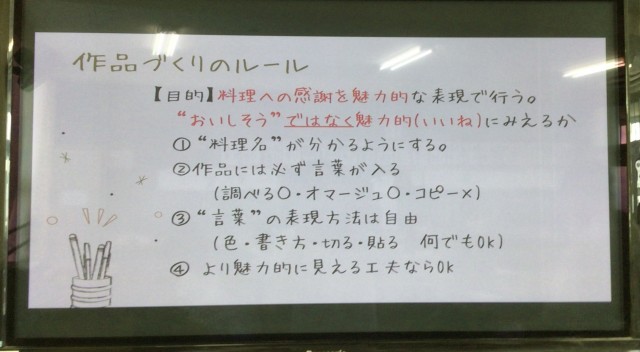 作品づくりのルール
【目的】料理への感謝を魅力的な表現で行う。
“おいしそう”ではなく魅力的(いいね)にみえるか
①“料理名”が分かるようにする。
②作品には必ず言葉が入る
(調べる○・オマージュ○・コピー×)
③“言葉”の表現方法は自由
(色・書き方・切る・貼る 何でもOK)
④ より魅力的に見える工夫ならOK